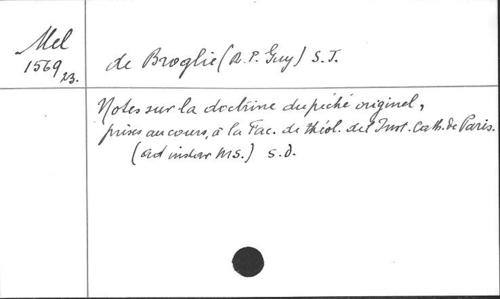 Mel
1569
23.
de Broglie (R.P. Guy) S.J.
Notes sur la doctrine du péché originel,
prises au cours, à la Fac. de théol. de l'Inst. Cath. de Paris.
(ad instar MS.) s.d.